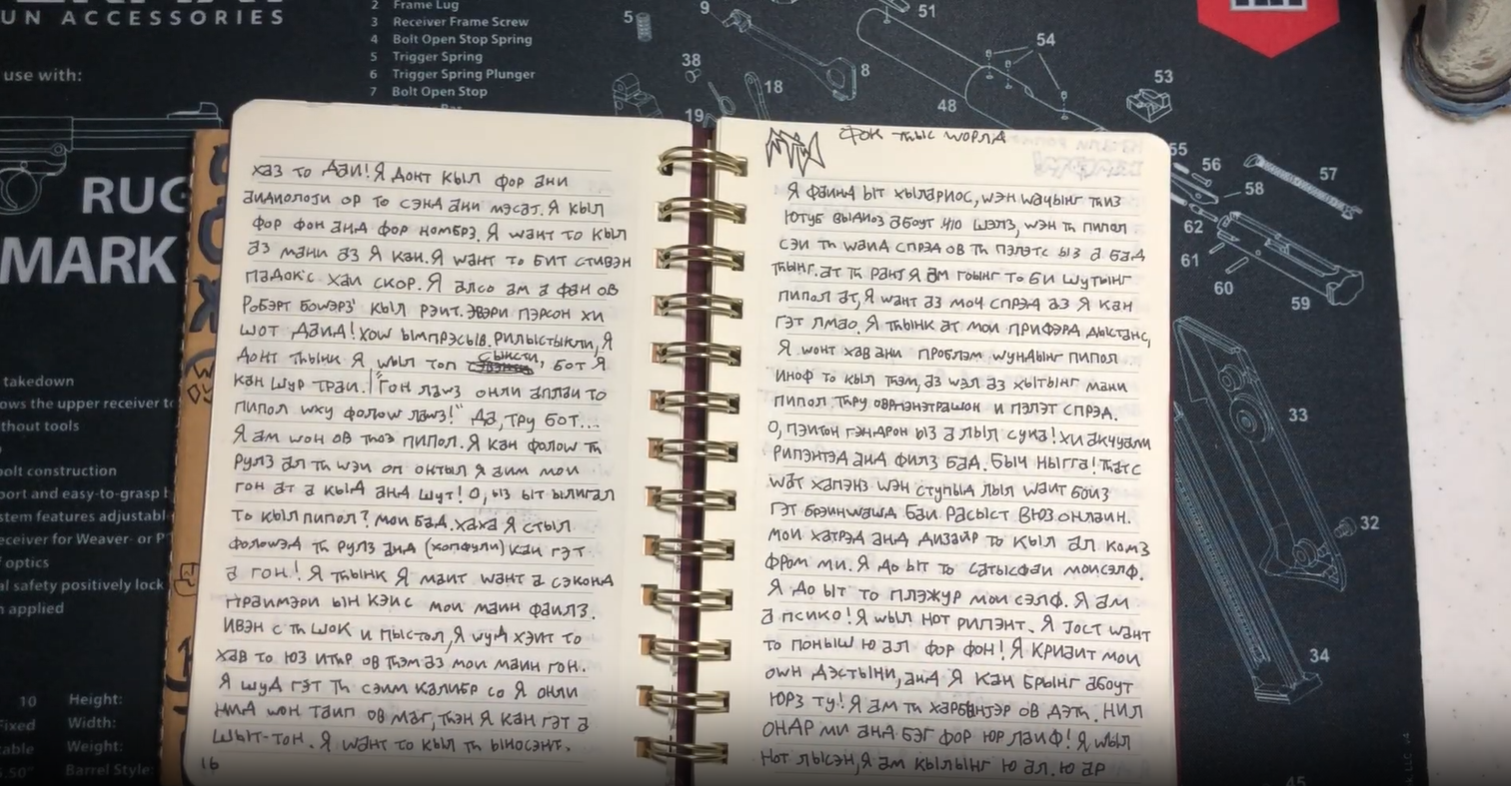 UN ACCESSORIES
use with:
RUG
MARK
2 Frame Lug
3 Receiver Frame Screw
4 Bolt Open Stop Spring
5 Trigger Spring
6 Trigger Spring Plunger
7 Bolt Open Stop
takedown
ows the upper receiver to
thout tools
bolt construction
port and easy-to-grasp
stem features adjustabl
eceiver for Weaver- or P
optics
al safety positively lock
applied
10 Height:
Fixed Width:
Weight:
5.50" Barrel Style:
5
9
8
38
18
19
51
54
48
53
55
56
57
58
62
61
60
59
33
32
34
45
хаз то даи! Я донт кыл фор ани
аидиолоји ор то сэнд ани мэсаɉ. Я кыл
фор фон анд фор номбрз. Я wант то кыл
аз мани аз Я кан. Я wант то бит стивэн
падок'с хаи скор. Я алсо ам а фан ов
Робэрт боwэрз' кыл рэит. Эвэри пэрсон хи
шот даид! хоw ымпрэсыв. рилыстыкли, Я
донт тһынк Я wыл топ сыксти, бот Я
кан шур траи. "гон лаwз онли аплаи то
пипол wху фолоw лаwз!" да, тру бот...
Я ам wон ов тһоз пипол. Я кан фолоw тһ
рулз ал тһ wэи оп онтыл Я аим мои
гон ат а кыд анд шут! О, ыз ыт ылигал
то кыл пипол? мои бад. хаха Я стыл
фолоwэд тһ рулз анд (хопфули) кан гэт
а гон! Я тһынк Я маит wант а сэконд
праимэри ын кэис мои маин фаилз.
ивэн с тһ шок и пыстол, Я wуд хэит то
хав то юз итһр ов тһэм аз мои маин гон.
Я шуд гэт тһ сэим калибр со Я онли
нид wон таип ов маг, тһэн Я кан гэт а
шыт-тон. Я wант то кыл тһ ыносэнт.
16
фок тһыс wорлд
Я фаинд ыт хылариос, wэн wачынг тһиз
ютуб выдиоз абоут 410 шэлз, wэн тһ пипол
сэи тһ wаид спрэд ов тһ пэлэтс ыз а бад
тһынг. ат тһ ранɉ Я ам гоынг то би шутынг
пипол ат, Я wант аз моч спрэд аз Я кан
гэт лмао. Я тһынк ат мои прифэрд дыстанс,
Я wонт хав ани проблэм wундынг пипол
иноф то кыл тһэм, аз wэл аз хытынг мани
пипол тһру оврпэнэтрашон и пэлэт спрэд.
О, пэитон гэндрон ыз а лыл сука! хи акчуали
рипэнтэд анд филз бад. быч ныгга! тһатс
wат хапэнз wэн ступыд лыл wаит боиз
гэт брэинwашд баи расыст вюз онлаин.
мои хатрэд анд дизаир то кыл ал комз
фром ми. Я до ыт то сатысфаи моисэлф.
Я до ыт то плэжур мои сэлф. Я ам
а псико! Я wыл нот рипэнт. Я јост wант
то поныш ю ал фор фон! Я криэит мои
оwн дэстыни, анд Я кан брынг абоут
юрз ту! Я ам тһ харбынɉэр ов дэтһ. нил
ондр ми анд бэг фор юр лаиф! Я wыл
нот лысэн, Я ам кылынг ю ал. ю ар